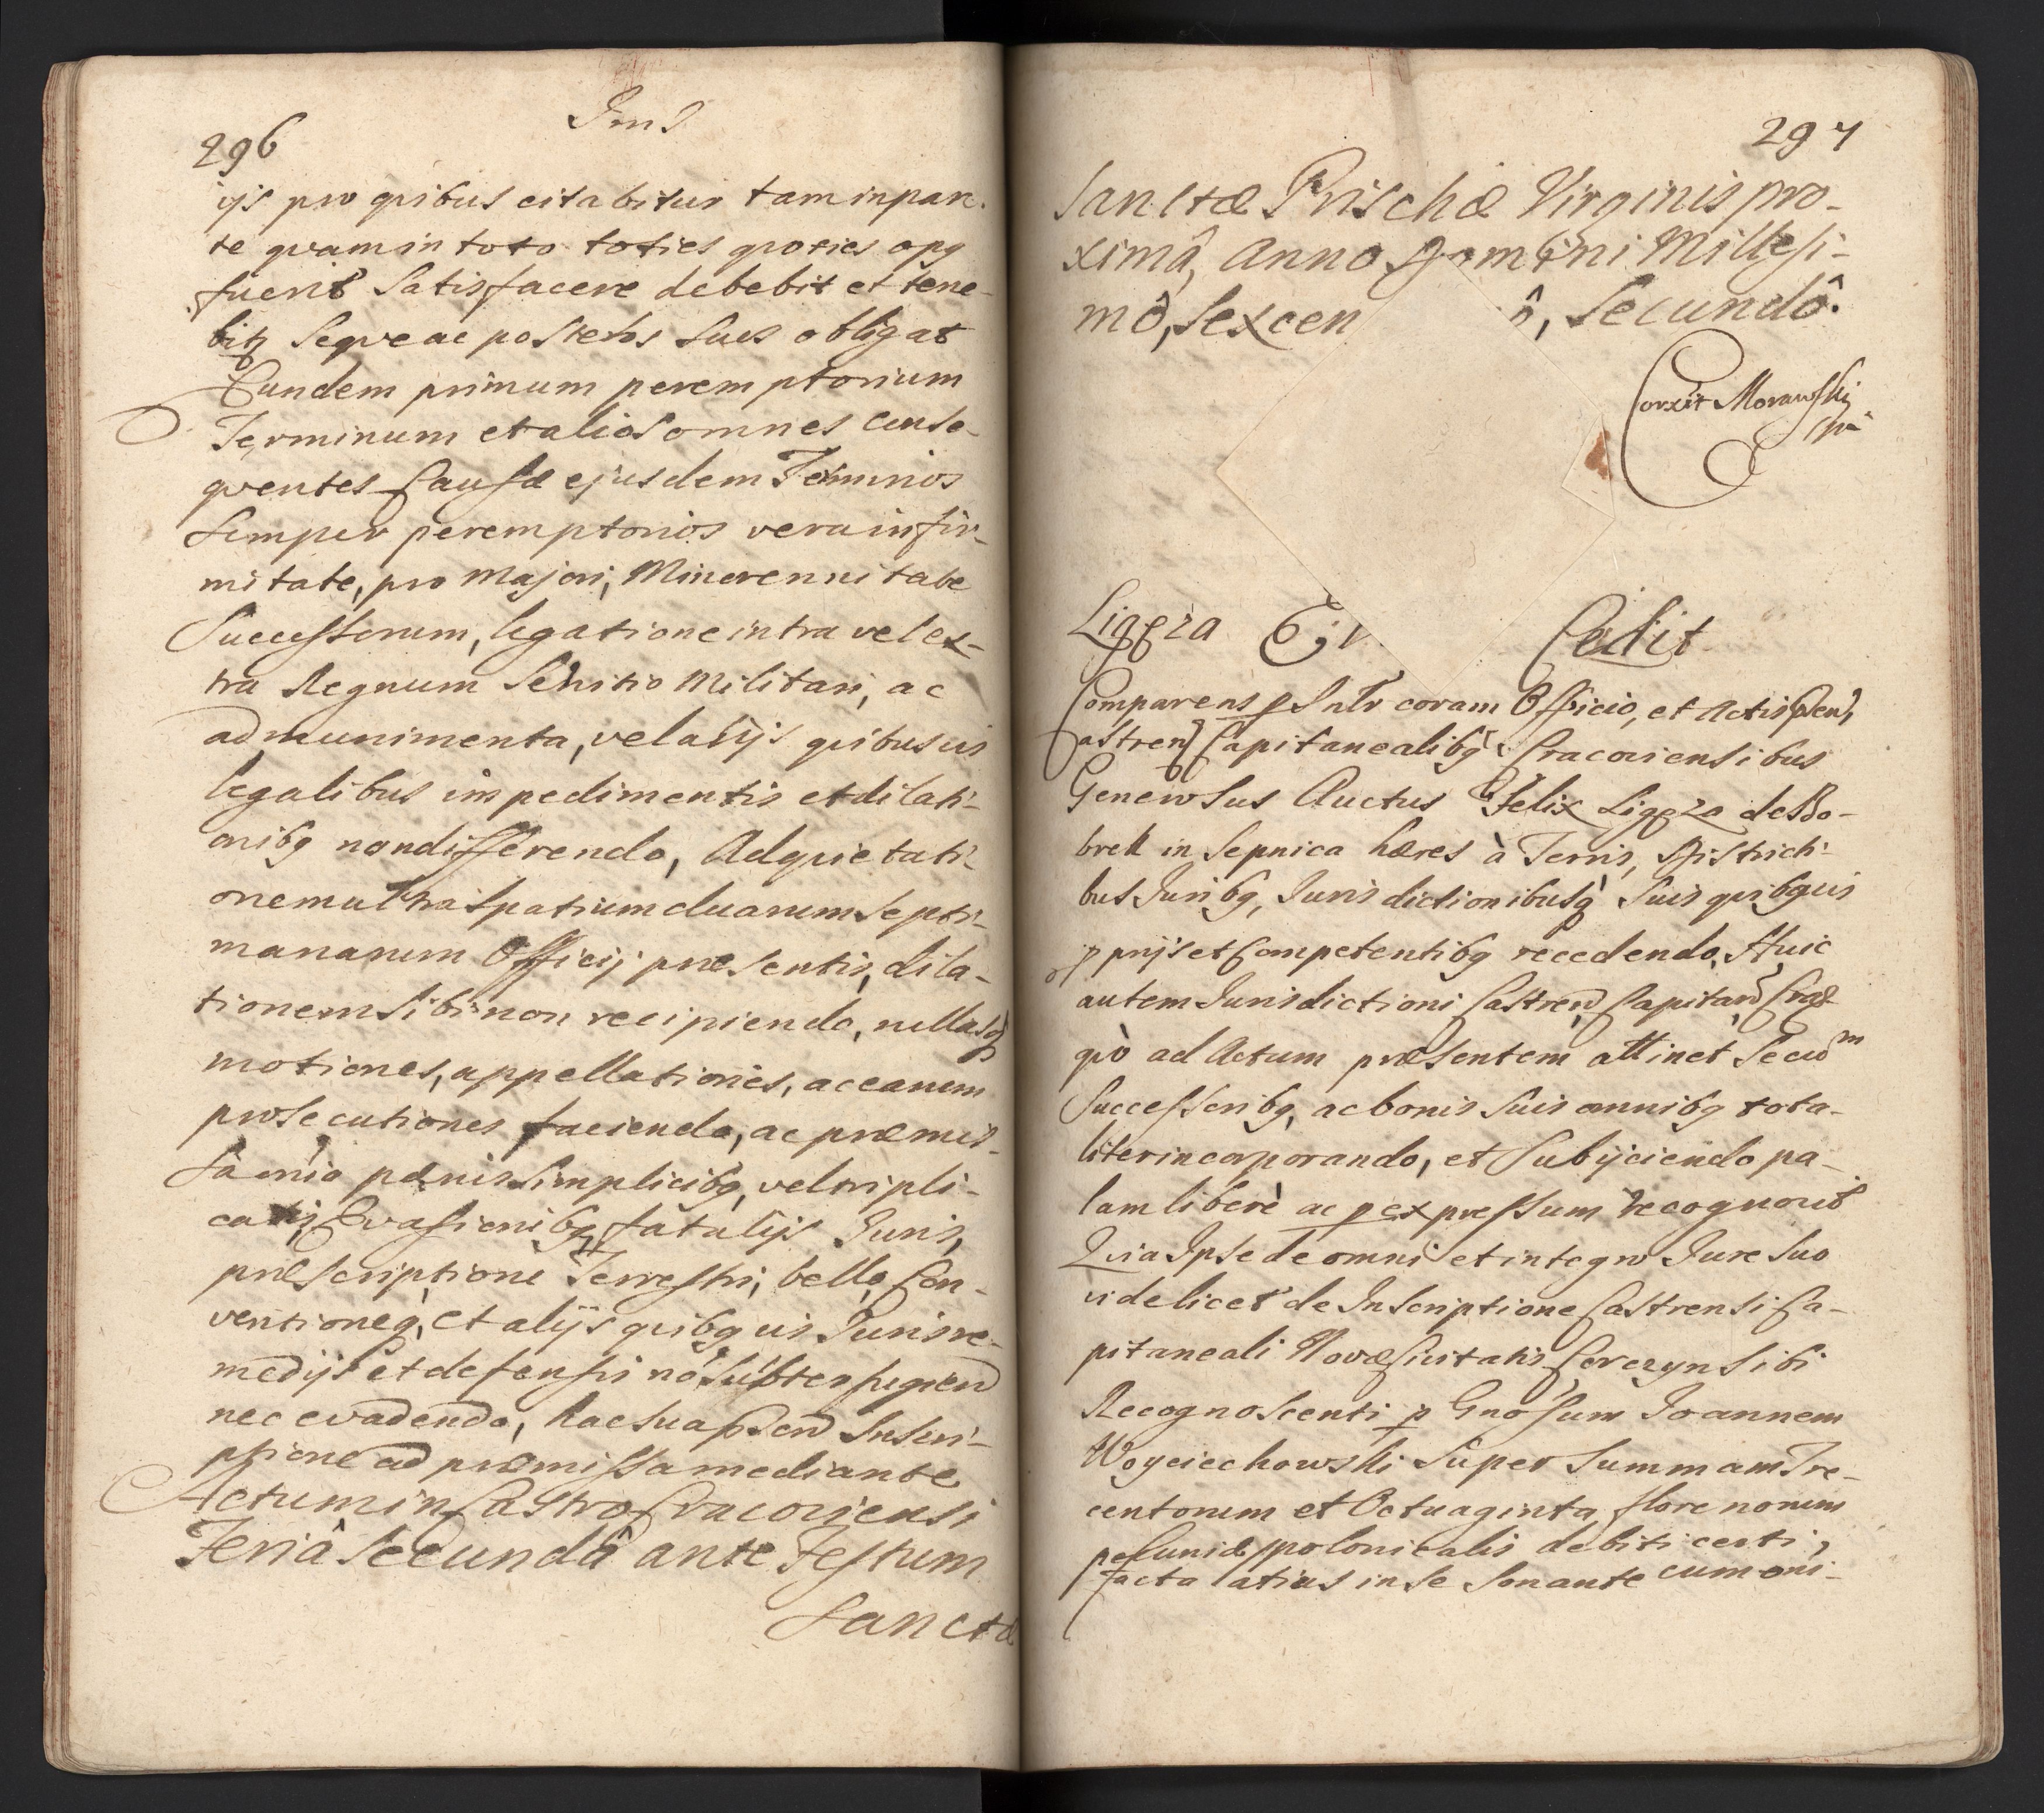 296
ijs pro qvibus citabitur tam in par-
te qvam in toto toties qvoties opq
fuerit Satisfacere debebit et tene-
bitq Seqve ac posteros suos obligat
Eundem primum peremptorium
Terminum et alios omnes conse-
qventes Causæ ejusdem Terminos
semper peremptorios vera infir-
mitate, pro Majori, Minorennitate
Successorum, legatione intra vel ex-
tra Regnum Servitio Militari, ac
ad munimenta, vel alijs qvibusvis
legalibus impedimentis et dilati-
onibq non differendo, Ad qvietati-
onem ultra Spatium duarum Septi-
manarum Officij præsentis, dila-
tionem sibi non recipiendo, nullasq
motiones, appellationes, ac earum
prosecutiones faciendo, ac præmis-
sa omnia pænis simplicibq, vel tripli-
catis, Evasionibq, fatalijs Juris,
præscriptione Terrestri, bello, Con-
ventioneq, et alijs qvibqvis Juris re-
medijs et defensis nō subterfugiend
nec evadendo, hac sua pŝend Inscri-
ptione ad præmissa mediante
Actum in Castro Cracoviensi
Feriâ Secundâ ante Festum
Sanctæ
297
Sanctæ Prischæ Virginis pro-
ximâ, Anno Domini Millesi-
mô, Sexcen ô, Secundô.
Corxit Morawski
Ligęza Cedit
Comparens pSnltr coram Officio, et Actis pŝen,
Castren Capitanealibq Cracoviensibus
Generosus Auctus Felix Ligęza de Bo-
brek in Sepnica hæres à Terris, Districti-
bus Juribq, Jurisdictionibusq Suis qvibqvis
pprijs et Competentibq recedendo, Huic
autem Jurisdictioni Castren, Capitan, Crac
qvò ad Actum præsentem attinet Secum
Successoribq, ac bonis suis omnibq tota-
liter incorporando, et Subijciendo pa-
lam liberè ac p expressum recognovit
Qvia Ipse de omni et integro Jure suo
videlicet de Inscriptione Castrensi Ca-
pitaneali Novæ Civitatis Corczyn Sibi
Recognoscenti p Gnosum Joannem
Woyciechowski Super Summam Tre-
centorum et Octuaginta florenorum
pecuniæ polonicalis debiti certi,
facta latius in se sonante cum omi-